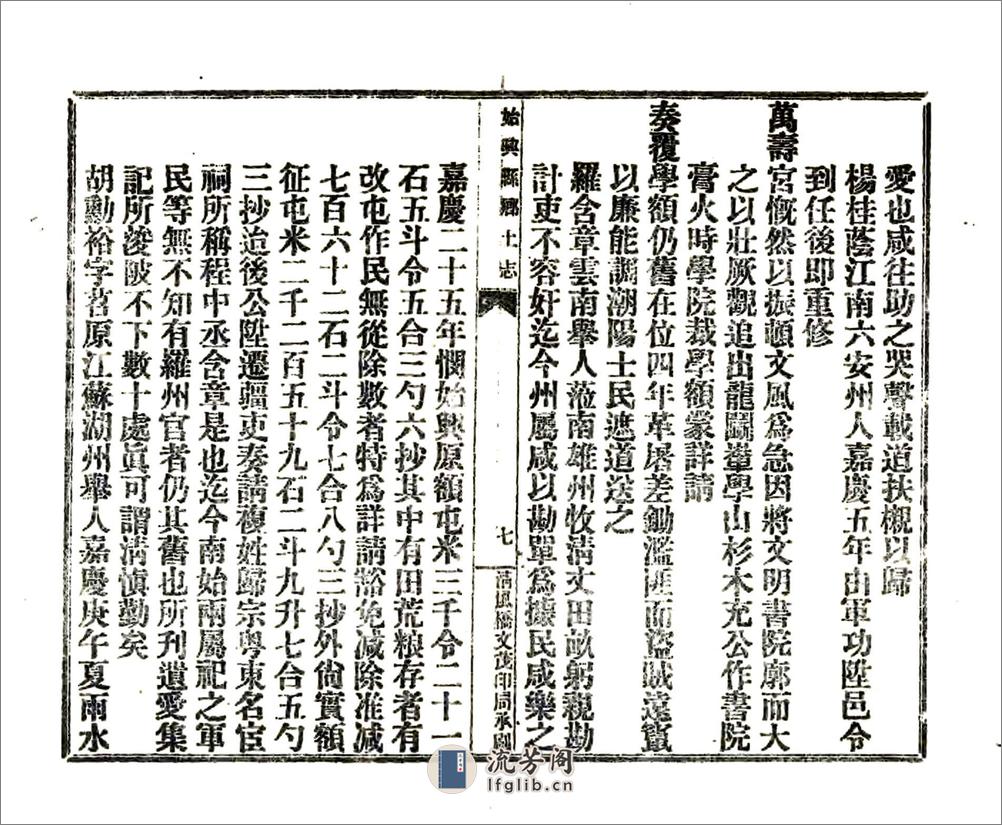 愛也咸往助之哭聲載道扶櫬以歸
楊桂蔭江南六安州人嘉慶五年由軍功陞邑令
到任後即重修
萬壽宮慨然以振頓文風為急因將文明書院廓而大
之以壯厥觀追出龍鬭輋學山杉木充公作書院
膏火時學院裁學額蒙詳請
奏覆學額仍舊在位四年革堵差鋤濫匪而盜賊遠竄
以廉能調潮陽士民遮道送之
羅含章雲南舉人蒞南雄州牧清丈田畝躬親勘
計吏不容奸迄今州屬咸以勘單為據民咸樂之
始興縣鄉土志
七
清風橋文茂印局承刷
嘉慶二十五年憫始興原額屯米三千令二十一
石五斗令五合三勺六抄其中有田荒粮存者有
改屯作民無從除數者特為詳請豁免減除准減
七百六十二石二斗令七合八勺三抄外尙實額
征屯米二千二百五十九石二斗九升七合五勺
三抄治後公陞遷疆吏奏請複姓歸宗粵東名宦
祠所稱程中丞含章是也迄今南始兩屬祀之軍
民等無不知有羅州官者仍其舊也所刊遺愛集
記所浚陂不下數十處眞可謂清慎勤矣
胡勳裕字苕原江蘇湖州舉人嘉慶庚午夏雨水
流芳阁
lfglib.cn